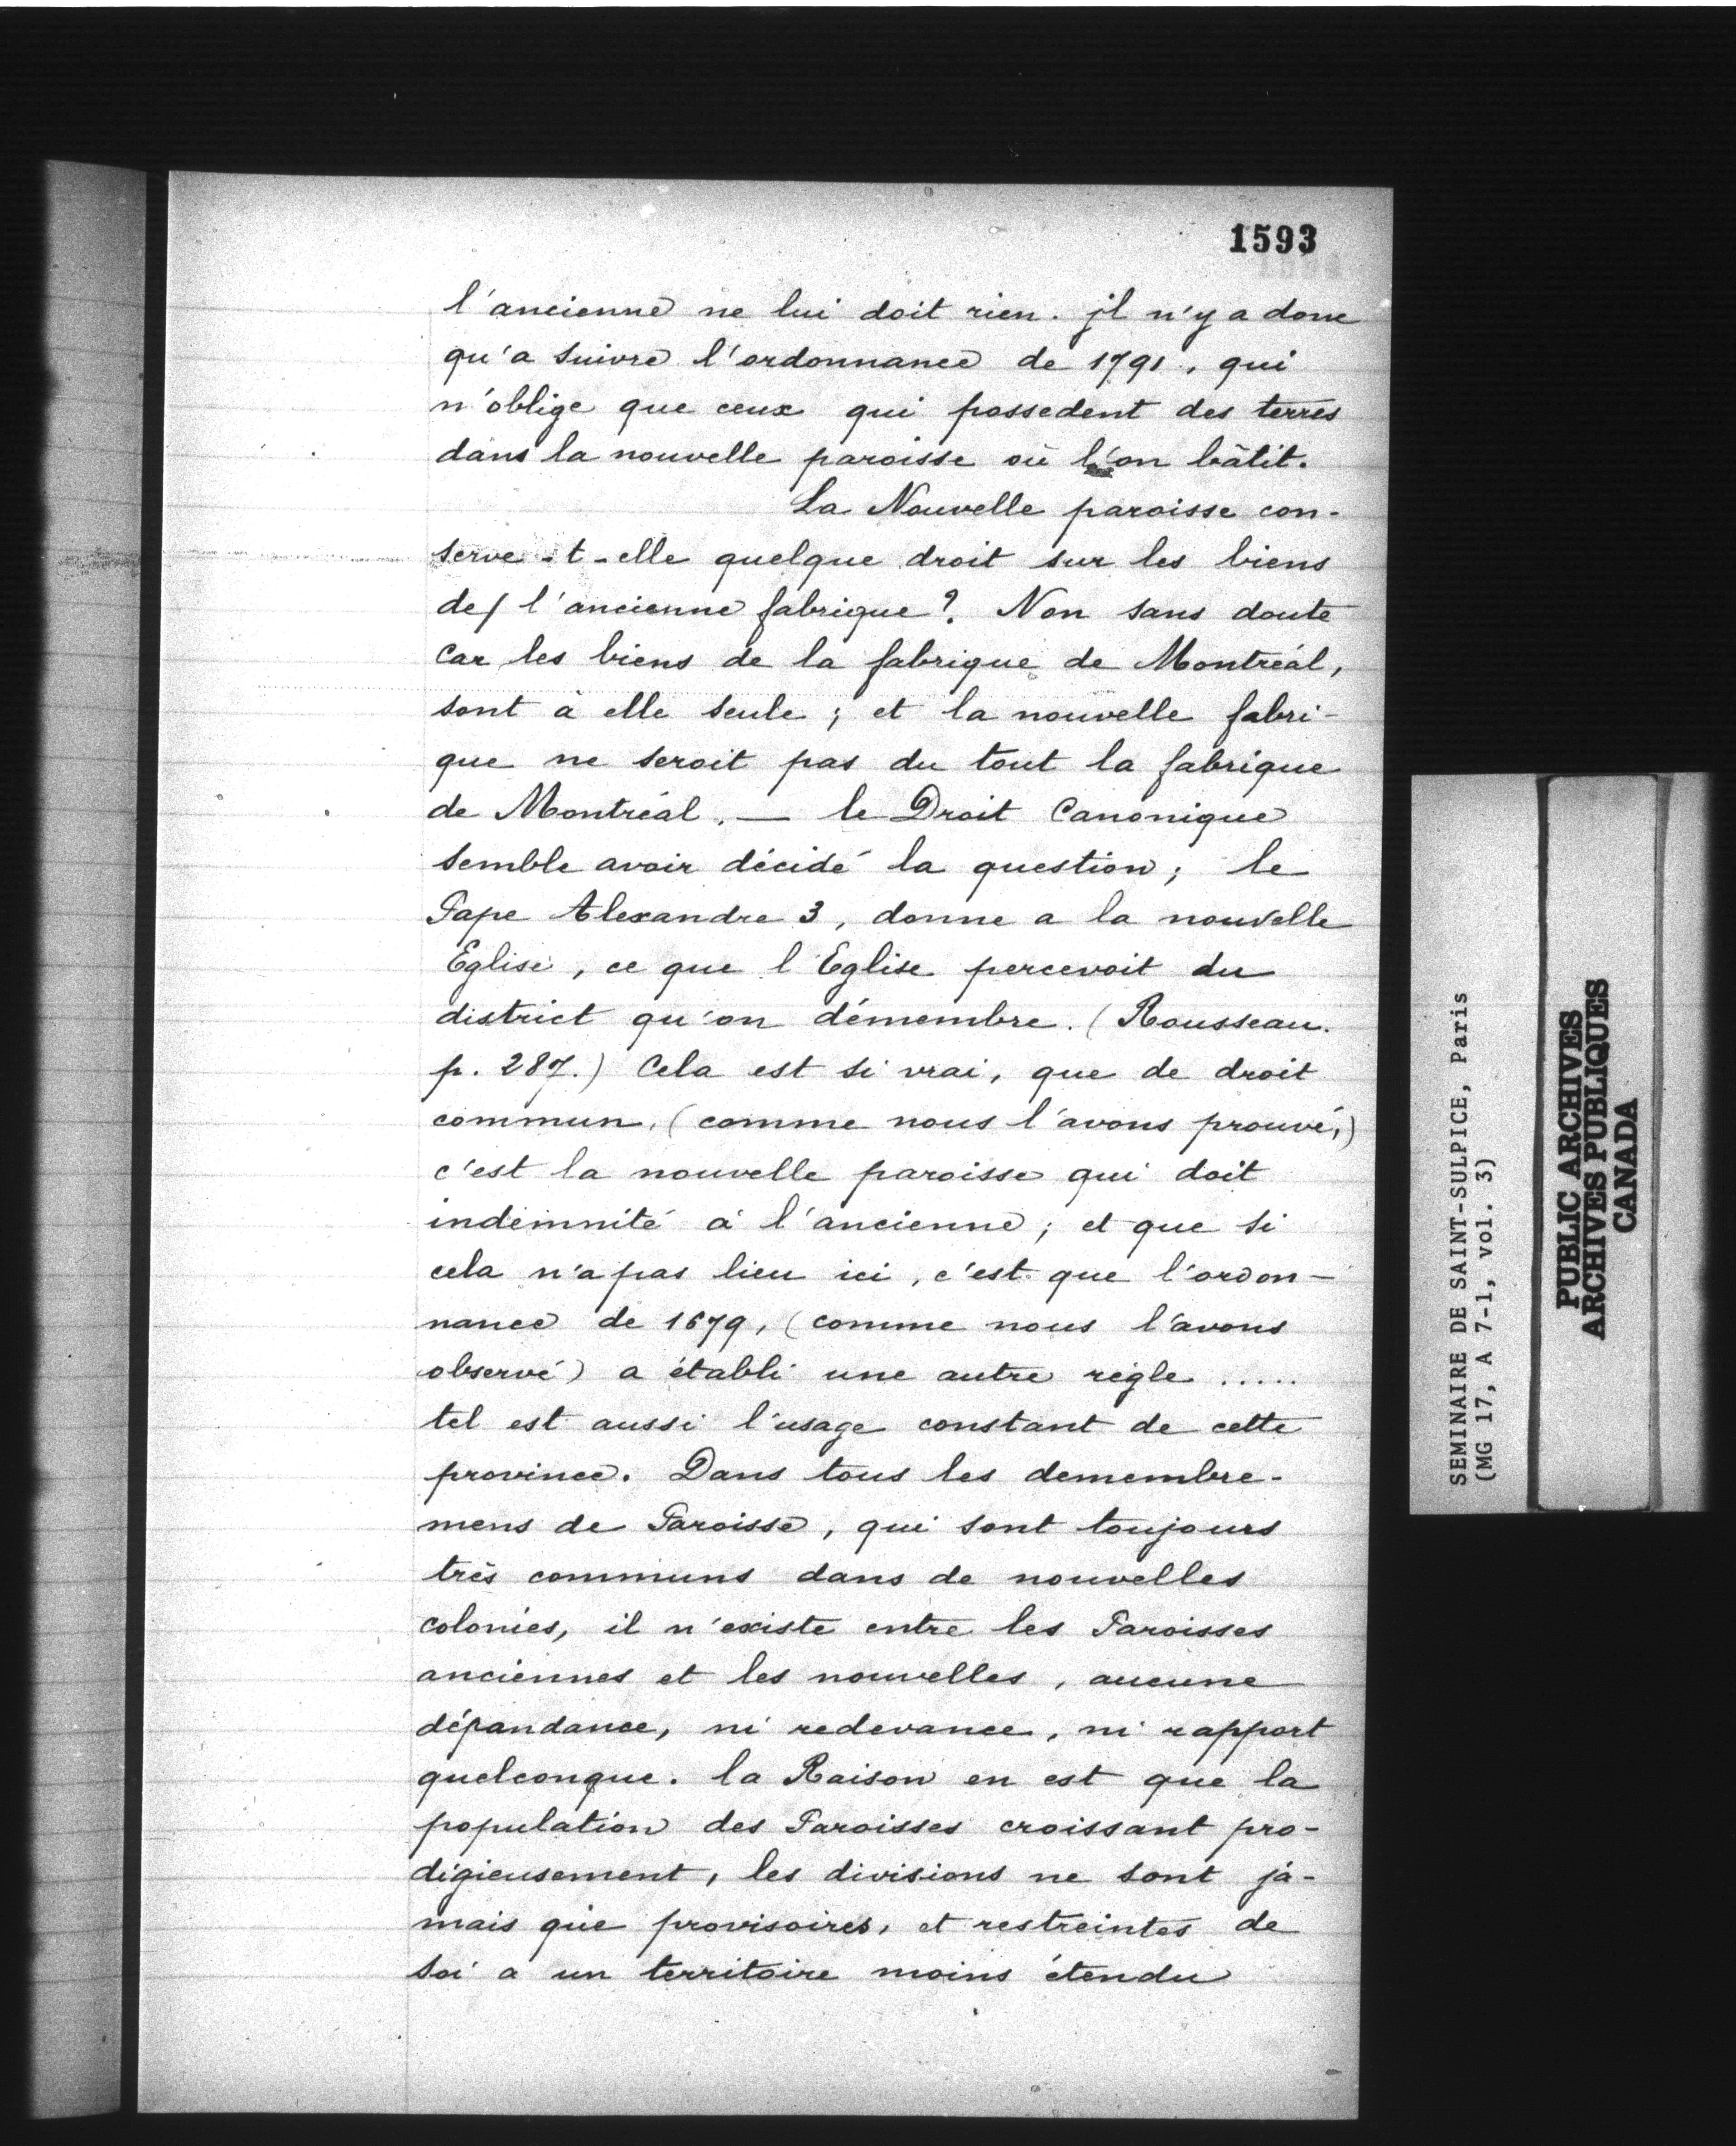 1593
l'ancienne ne lui doit rien. jl n'y a donc
qu'a suivre l'ordonnance de 1791, qui
n'oblige que ceux qui possedent des terres
dans la nouvelle paroisse où l'on bâtit.
La Nouvelle paroisse con-
serve-t-elle quelque droit sur les biens
de/ l'ancienne fabrique? Non sans doute
car les biens de la fabrique de Montréal,
sont à elle seule; et la nouvelle fabri-
que ne seroit pas du tout la fabrique
de Montréal. — le Droit Canonique
semble avoir décidé la question; le
Pape Alexandre 3, donne a la nouvelle
Eglise, ce que l'Eglise percevoit du
district qu'on démembre. (Rousseau.
p. 287.) Cela est si vrai, que de droit
commun, (comme nous l'avons prouvé,)
c'est la nouvelle paroisse qui doit
indemnité à l'ancienne; et que si
cela n'a pas lieu ici, c'est que l'ordon-
nance de 1679, (comme nous l'avons
observé) a établi une autre règle .....
tel est aussi l'usage constant de cette
province. Dans tous les demembre-
mens de Paroisse, qui sont toujours
très communs dans de nouvelles
colonies, il n'existe entre les Paroisses
anciennes et les nouvelles, aucune
dépandance, ni redevance, ni rapport
quelconque. la Raison en est que la
population des Paroisses croissant pro-
digieusement, les divisions ne sont ja-
mais que provisoires, et restreintes de
soi a un territoire moins étendu
SEMINAIRE DE SAINT-SULPICE, Paris
(MG 17, A 7-1, vol. 3)
PUBLIC ARCHIVES
ARCHIVES PUBLIQUES
CANADA